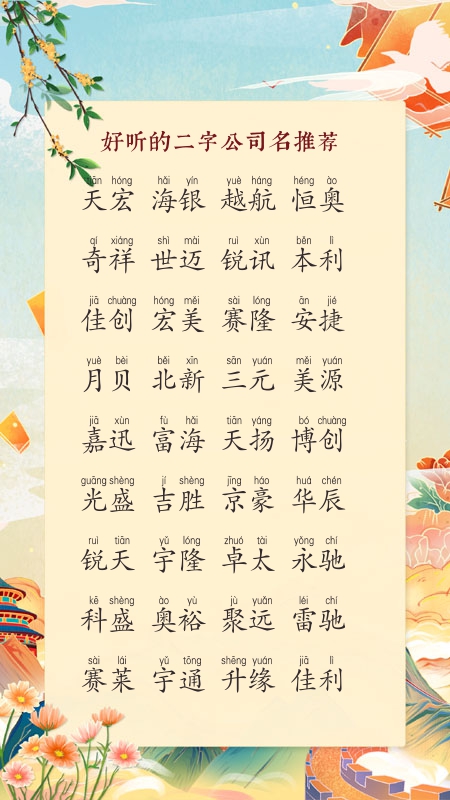 好听的二字公司名推荐
tiān hóng hǎi yín yuè háng héng ào
天宏 海银 越航 恒奥
qí xiáng shì mài ruì xùn běn lì
奇祥 世迈 锐讯 本利
jiā chuàng hóng měi sài lóng ān jié
佳创 宏美 赛隆 安捷
yuè bèi běi xīn sān yuán měi yuán
月贝 北新 三元 美源
jiā xùn fù hǎi tiān yáng bó chuàng
嘉迅 富海 天扬 博创
guāng shèng jí shèng jīng háo huá chén
光盛 吉胜 京豪 华辰
ruì tiān yǔ lóng zhuó tài yǒng chí
锐天 宇隆 卓太 永驰
kē shèng ào yù jù yuǎn léi chí
科盛 奥裕 聚远 雷驰
sài lái yǔ tōng shēng yuán jiā lì
赛莱 宇通 升缘 佳利